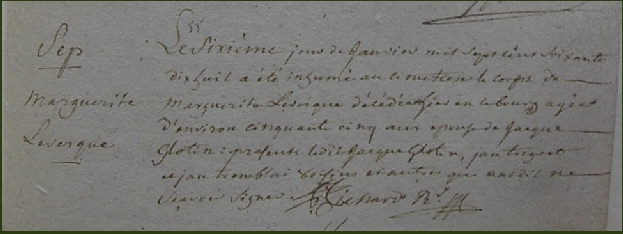 Sep
Marguerite
Levesque
Le Sixième jour de Janvier mil Sept Cent Soixante
dixhuit a été inhumé au cimetiere le corps de
Marguerite Levesque décédée hier en ce bourg agée
d'environ cinquante cinq ans epouse de Jacque
Glotin : presents ledit Jacque Glotin, jan
et jan tremblai et autres qui ont dit ne
Scavoir Signer Richard